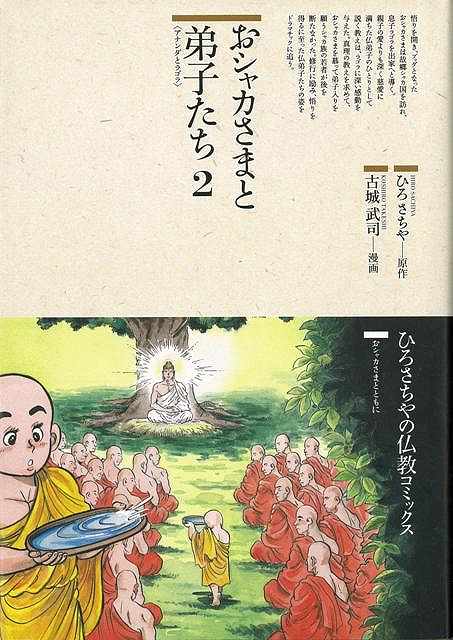 悟りを開き、ブッダとなった
おシャカさまは故郷シャカ国を訪れ、
息子ラゴラを出家へと導く。
親子の愛よりも深く慈愛に
満ちた仏弟子のひとりとして
説く教えは、ラゴラに深い感動を
与えた。真理の教えを求めて、
おシャカさまを慕って弟子入りを
願うシャカ族の若者が後を
断たなかった。修行に励み、悟りを
得るに至った仏弟子たちの姿を
ドラマチックに追う。
おシャカさまと
弟子たち 2
〈アナンダとラゴラ〉
HIRO SACHIYA
ひろ さちや──原作
KOSHIRO TAKESHI
古城 武司──漫画
ひろさちやの仏教コミックス
おシャカさまとともに